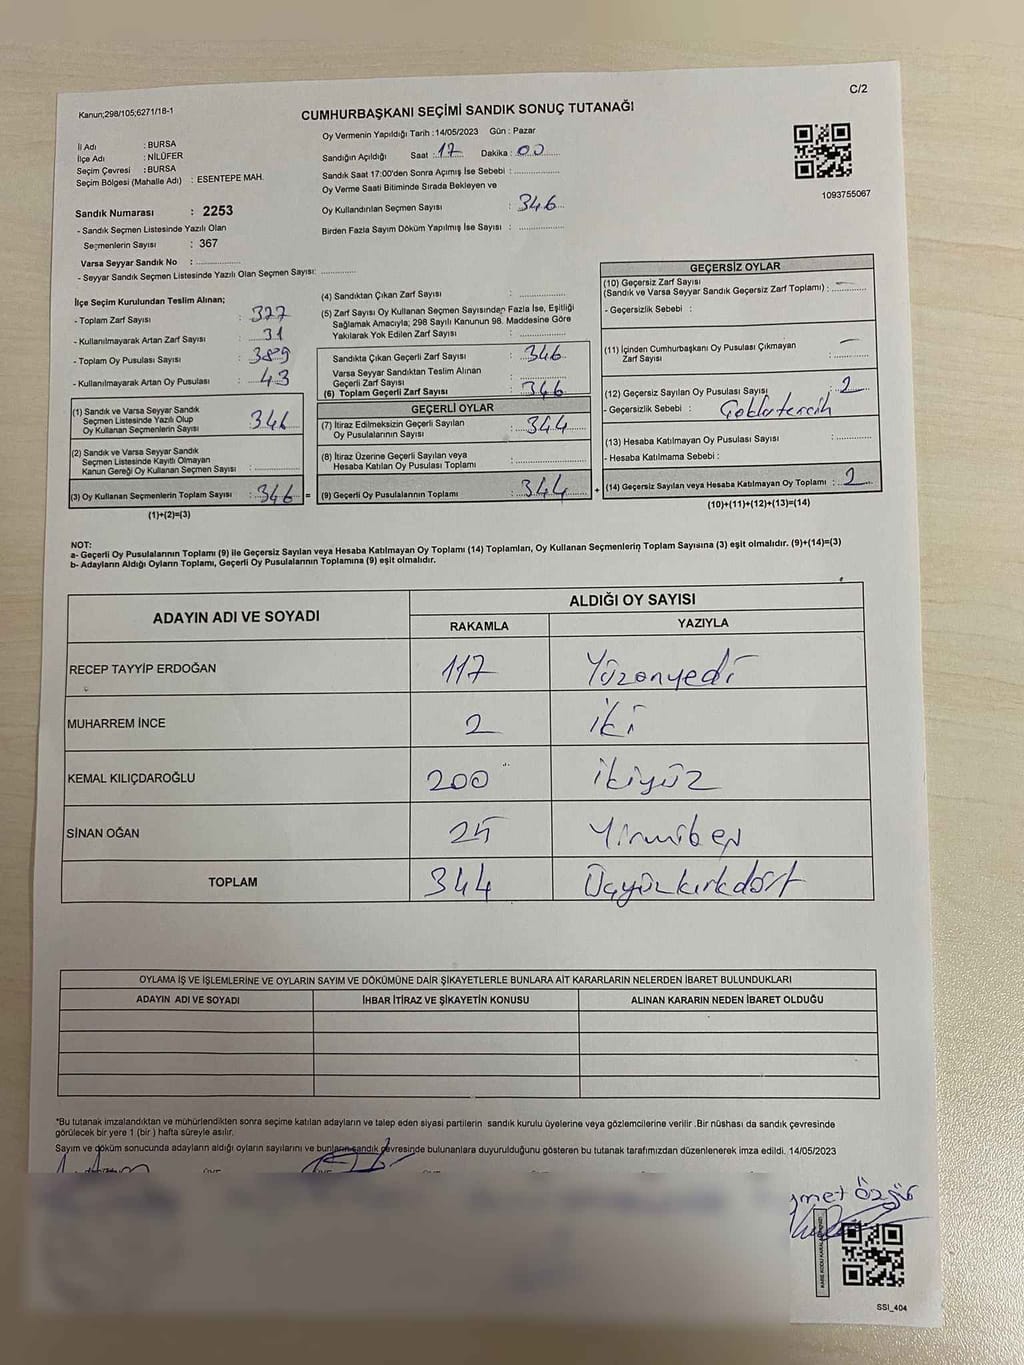 C/2
Kanun;298/105;6271/18-1
CUMHURBAŞKANI SEÇİMİ SANDIK SONUÇ TUTANAĞI
Oy Vermenin Yapıldığı Tarih : 14/05/2023 Gün : Pazar
İl Adı : BURSA
İlçe Adı : NİLÜFER
Seçim Çevresi : BURSA
Seçim Bölgesi (Mahalle Adı) : ESENTEPE MAH.
Sandığın Açıldığı Saat : 17 Dakika : 00
Sandık Saat 17:00'den Sonra Açımış İse Sebebi :
Oy Verme Saati Bitiminde Sırada Bekleyen ve
Oy Kullandırılan Seçmen Sayısı : 346
Birden Fazla Sayım Döküm Yapılmış İse Sayısı :
1093755067
Sandık Numarası : 2253
- Sandık Seçmen Listesinde Yazılı Olan
Seçmenlerin Sayısı : 367
Varsa Seyyar Sandık No :
- Seyyar Sandık Seçmen Listesinde Yazılı Olan Seçmen Sayısı:
İlçe Seçim Kurulundan Teslim Alınan;
- Toplam Zarf Sayısı : 377
- Kullanılmayarak Artan Zarf Sayısı : 31
- Toplam Oy Pusulası Sayısı : 389
- Kullanılmayarak Artan Oy Pusulası : 43
(1) Sandık ve Varsa Seyyar Sandık
Seçmen Listesinde Yazılı Olup
Oy Kullanan Seçmenlerin Sayısı : 346
(2) Sandık ve Varsa Seyyar Sandık
Seçmen Listesinde Kayıtlı Olmayan
Kanun Gereği Oy Kullanan Seçmen Sayısı :
(3) Oy Kullanan Seçmenlerin Toplam Sayısı : 346 =
(1)+(2)=(3)
(4) Sandıktan Çıkan Zarf Sayısı :
(5) Zarf Sayısı Oy Kullanan Seçmen Sayısından Fazla İse, Eşitliği
Sağlamak Amacıyla; 298 Sayılı Kanunun 98. Maddesine Göre
Yakılarak Yok Edilen Zarf Sayısı :
Sandıkta Çıkan Geçerli Zarf Sayısı : 346
Varsa Seyyar Sandıktan Teslim Alınan
Geçerli Zarf Sayısı :
(6) Toplam Geçerli Zarf Sayısı : 346
GEÇERLİ OYLAR
(7) İtiraz Edilmeksizin Geçerli Sayılan
Oy Pusulalarının Sayısı : 344
(8) İtiraz Üzerine Geçerli Sayılan veya
Hesaba Katılan Oy Pusulası Toplamı :
(9) Geçerli Oy Pusulalarının Toplamı : 344 +
GEÇERSİZ OYLAR
(10) Geçersiz Zarf Sayısı
(Sandık ve Varsa Seyyar Sandık Geçersiz Zarf Toplamı) : —
- Geçersizlik Sebebi :
(11) İçinden Cumhurbaşkanı Oy Pusulası Çıkmayan
Zarf Sayısı : —
(12) Geçersiz Sayılan Oy Pusulası Sayısı : 2
- Geçersizlik Sebebi : Çoklu tercih
(13) Hesaba Katılmayan Oy Pusulası Sayısı :
- Hesaba Katılmama Sebebi :
(14) Geçersiz Sayılan veya Hesaba Katılmayan Oy Toplamı : 2
(10)+(11)+(12)+(13)=(14)
NOT:
a- Geçerli Oy Pusulalarının Toplamı (9) ile Geçersiz Sayılan veya Hesaba Katılmayan Oy Toplamı (14) Toplamları, Oy Kullanan Seçmenlerin Toplam Sayısına (3) eşit olmalıdır. (9)+(14)=(3)
b- Adayların Aldığı Oyların Toplamı, Geçerli Oy Pusulalarının Toplamına (9) eşit olmalıdır.
ADAYIN ADI VE SOYADI ALDIĞI OY SAYISI
RAKAMLA YAZIYLA
RECEP TAYYİP ERDOĞAN 117 Yüzonyedi
MUHARREM İNCE 2 iki
KEMAL KILIÇDAROĞLU 200 ikiyüz
SİNAN OĞAN 25 Yirmibeş
TOPLAM 344 Üçyüzkırkdört
OYLAMA İŞ VE İŞLEMLERİNE VE OYLARIN SAYIM VE DÖKÜMÜNE DAİR ŞİKAYETLERLE BUNLARA AİT KARARLARIN NELERDEN İBARET BULUNDUKLARI
ADAYIN ADI VE SOYADI İHBAR İTİRAZ VE ŞİKAYETİN KONUSU ALINAN KARARIN NEDEN İBARET OLDUĞU
*Bu tutanak imzalandıktan ve mühürlendikten sonra seçime katılan adayların ve talep eden siyasi partilerin sandık kurulu üyelerine veya gözlemcilerine verilir .Bir nüshası da sandık çevresinde
görülecek bir yere 1 (bir ) hafta süreyle asılır.
Sayım ve döküm sonucunda adayların aldığı oyların sayılarını ve bunların sandık çevresinde bulunanlara duyurulduğunu gösteren bu tutanak tarafımızdan düzenlenerek imza edildi. 14/05/2023
SSI_404